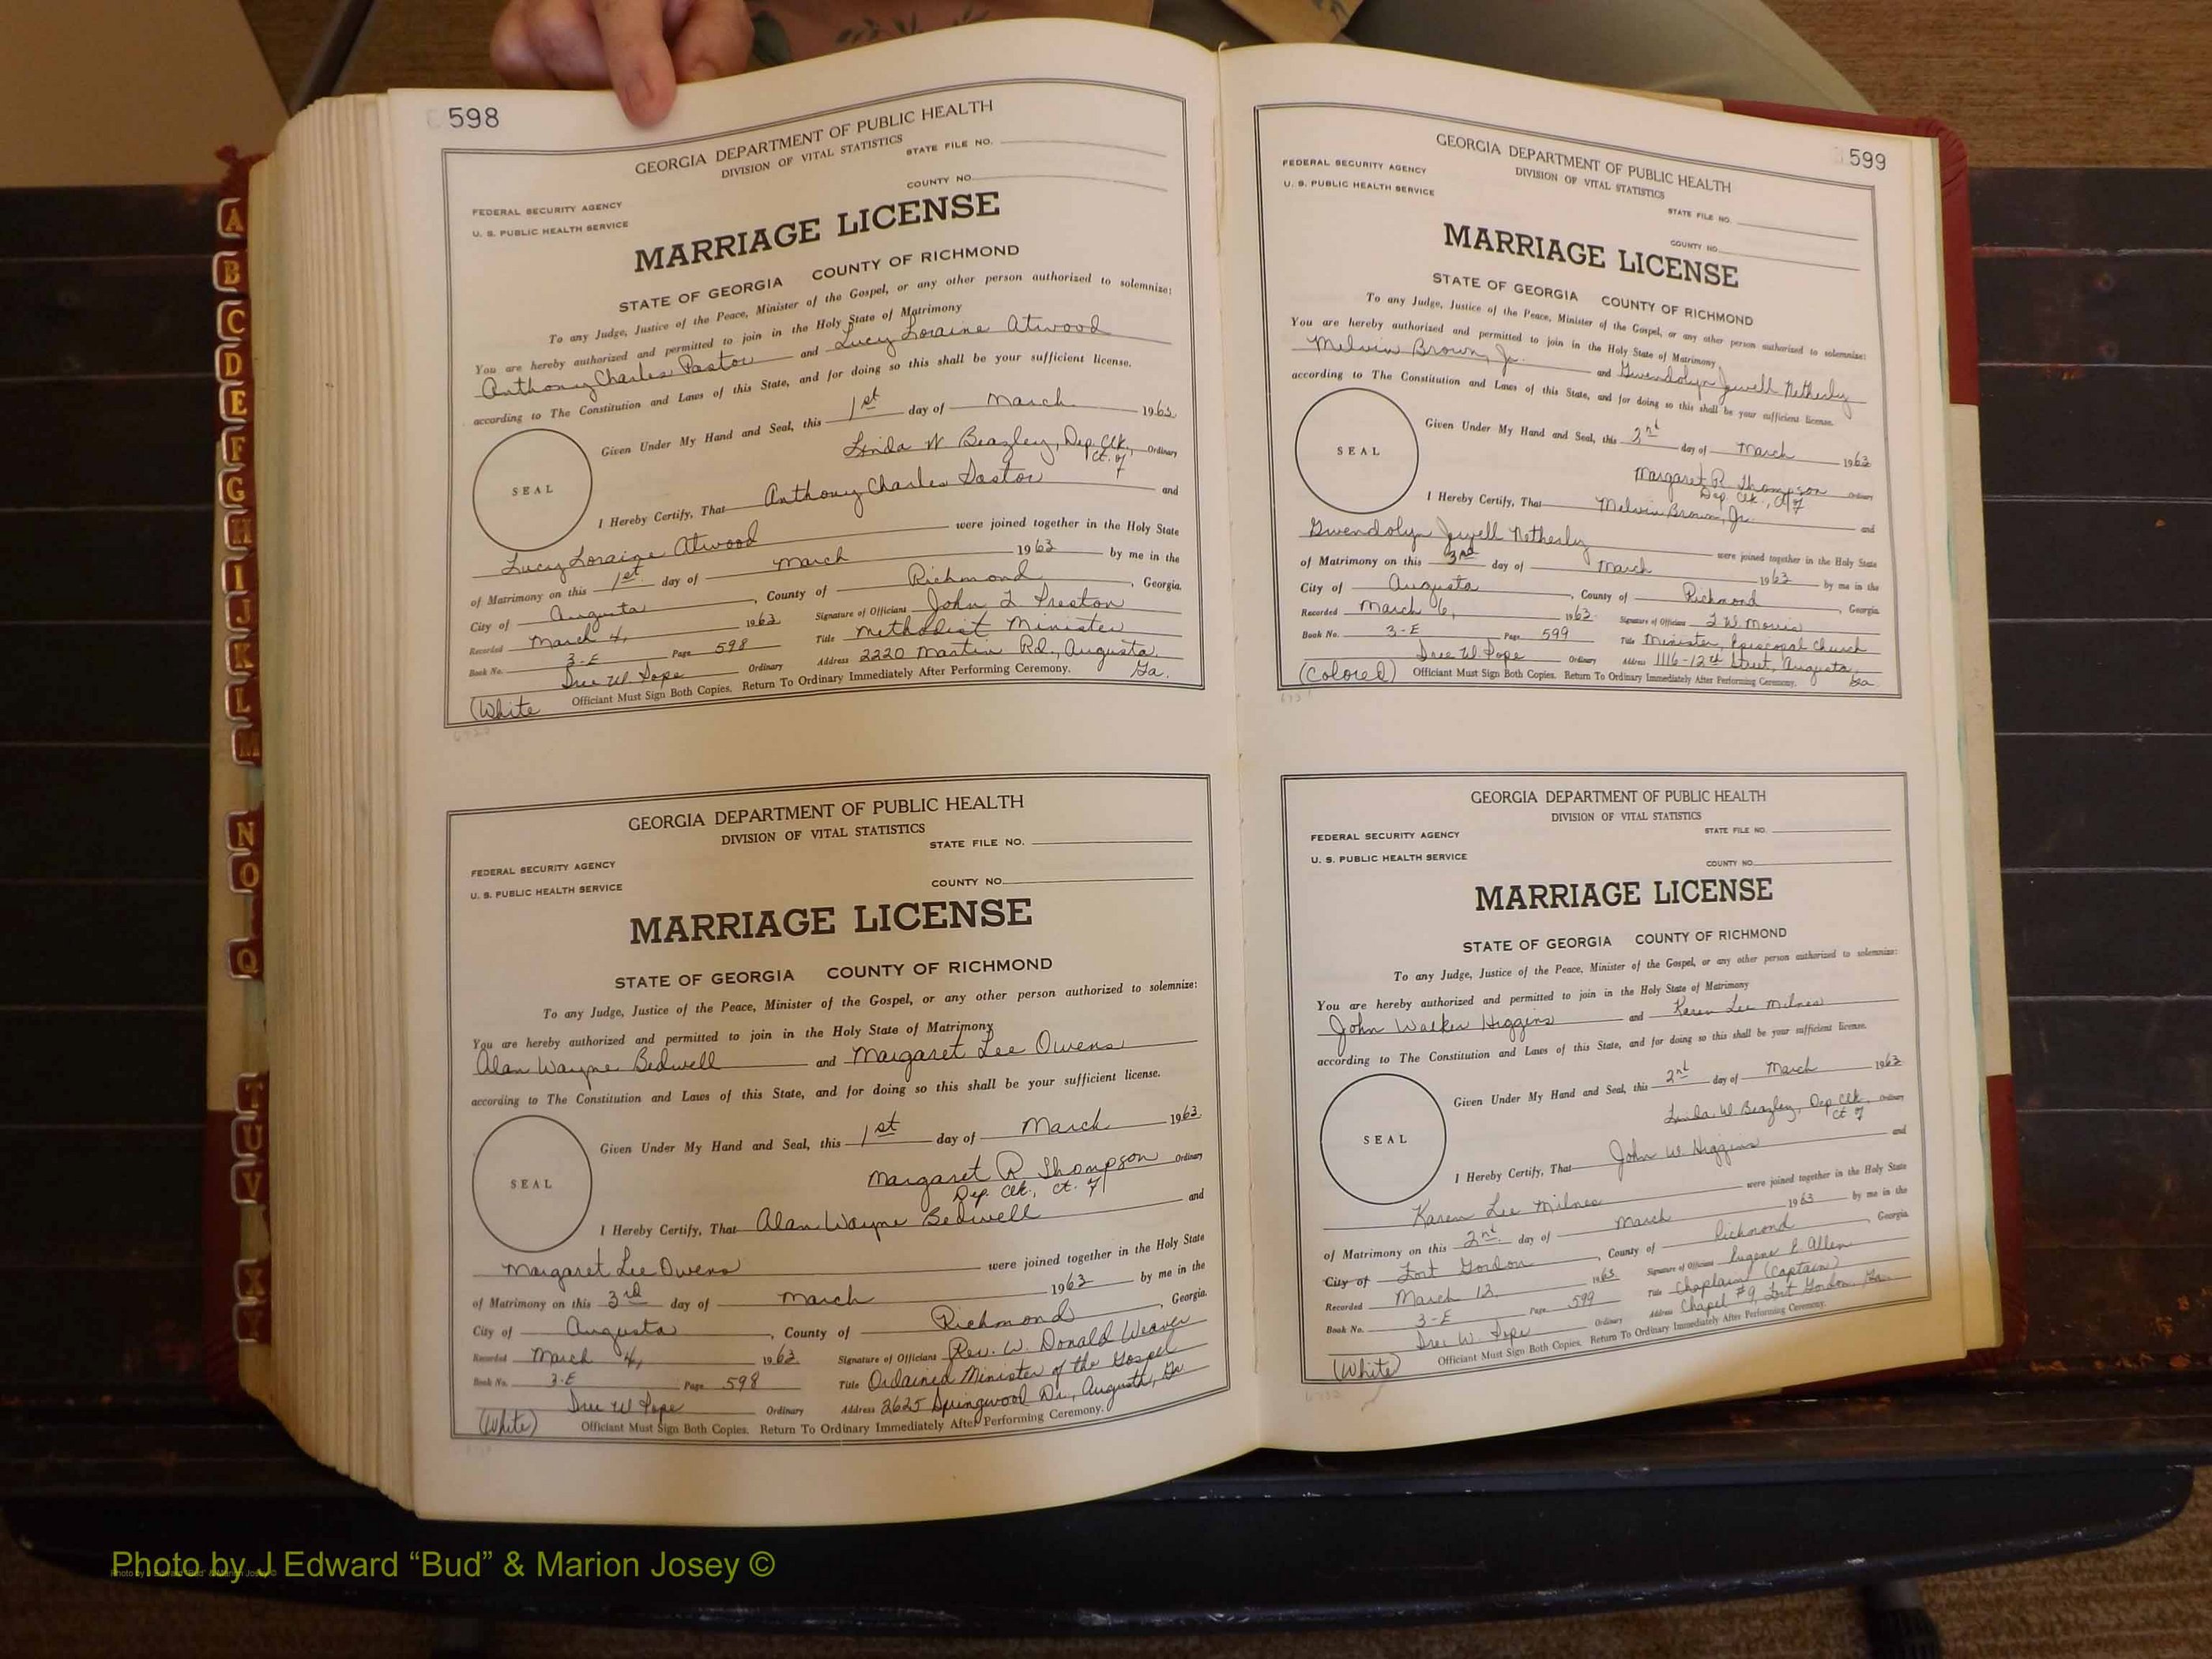 598
GEORGIA DEPARTMENT OF PUBLIC HEALTH
DIVISION OF VITAL STATISTICS
STATE FILE NO.
COUNTY NO.
FEDERAL SECURITY AGENCY
U. S. PUBLIC HEALTH SERVICE
MARRIAGE LICENSE
STATE OF GEORGIA COUNTY OF RICHMOND
To any Judge, Justice of the Peace, Minister of the Gospel, or any other person authorized to solemnize:
You are hereby authorized and permitted to join in the Holy State of Matrimony
Anthony Charles Pastor and Lucy Loraine Atwood
according to The Constitution and Laws of this State, and for doing so this shall be your sufficient license.
Given Under My Hand and Seal, this 1st day of March 1963
Linda W. Beazley, Dep. Clk., Ordinary
Ct. of
SEAL
I Hereby Certify, That Anthony Charles Pastor and
Lucy Loraine Atwood were joined together in the Holy State
of Matrimony on this 1st day of March 1963 by me in the
City of Augusta, County of Richmond, Georgia.
Recorded March 4, 1963 Signature of Officiant John L. Preston
Book No. 3-E Page 598 Title Methodist Minister
Dree W. Pope Ordinary Address 2220 Martin Rd., Augusta,
Ga.
(White Officiant Must Sign Both Copies. Return To Ordinary Immediately After Performing Ceremony.
GEORGIA DEPARTMENT OF PUBLIC HEALTH
DIVISION OF VITAL STATISTICS
STATE FILE NO.
FEDERAL SECURITY AGENCY
U. S. PUBLIC HEALTH SERVICE
COUNTY NO.
MARRIAGE LICENSE
STATE OF GEORGIA COUNTY OF RICHMOND
To any Judge, Justice of the Peace, Minister of the Gospel, or any other person authorized to solemnize:
You are hereby authorized and permitted to join in the Holy State of Matrimony
Alan Wayne Bedwell and Margaret Lee Owens
according to The Constitution and Laws of this State, and for doing so this shall be your sufficient license.
Given Under My Hand and Seal, this 1st day of March 1963
Margaret R Thompson Ordinary
Dep. Clk., Ct. of
SEAL
I Hereby Certify, That Alan Wayne Bedwell and
Margaret Lee Owens were joined together in the Holy State
of Matrimony on this 3rd day of March 1963 by me in the
City of Augusta, County of Richmond, Georgia.
Recorded March 4, 1963 Signature of Officiant Rev. W. Donald Weaver
Book No. 3-E Page 598 Title Ordained Minister of the Gospel
Dree W Pope Ordinary Address 2625 Springwood Dr., Augusta, Ga
(White) Officiant Must Sign Both Copies. Return To Ordinary Immediately After Performing Ceremony.
599
GEORGIA DEPARTMENT OF PUBLIC HEALTH
DIVISION OF VITAL STATISTICS
FEDERAL SECURITY AGENCY
U. S. PUBLIC HEALTH SERVICE
STATE FILE NO.
COUNTY NO.
MARRIAGE LICENSE
STATE OF GEORGIA COUNTY OF RICHMOND
To any Judge, Justice of the Peace, Minister of the Gospel, or any other person authorized to solemnize:
You are hereby authorized and permitted to join in the Holy State of Matrimony
Melvin Brown, Jr. and Gwendolyn Jewell Netherly
according to The Constitution and Laws of this State, and for doing so this shall be your sufficient license.
Given Under My Hand and Seal, this 2nd day of March 1963
Margaret R Thompson Ordinary
Dep. Clk., Ct of
SEAL
I Hereby Certify, That Melvin Brown, Jr. and
Gwendolyn Jewell Netherly were joined together in the Holy State
of Matrimony on this 3rd day of March 1963 by me in the
City of Augusta, County of Richmond, Georgia
Recorded March 6, 1963 Signature of Officiant Morris
Book No. 3-E Page 599 Title Minister, Episcopal Church
Dree W. Pope Ordinary Address 1116-12th Street, Augusta,
Ga
(Colored) Officiant Must Sign Both Copies. Return To Ordinary Immediately After Performing Ceremony.
GEORGIA DEPARTMENT OF PUBLIC HEALTH
DIVISION OF VITAL STATISTICS
STATE FILE NO.
FEDERAL SECURITY AGENCY
U. S. PUBLIC HEALTH SERVICE
COUNTY NO.
MARRIAGE LICENSE
STATE OF GEORGIA COUNTY OF RICHMOND
To any Judge, Justice of the Peace, Minister of the Gospel, or any other person authorized to solemnize:
You are hereby authorized and permitted to join in the Holy State of Matrimony
John Walker Higgins and Karen Lee Milnes
according to The Constitution and Laws of this State, and for doing so this shall be your sufficient license.
Given Under My Hand and Seal, this 2nd day of March 1963
Linda W Beazley, Dep Clk. Ordinary
Ct of
SEAL
I Hereby Certify, That John W. Higgins and
Karen Lee Milnes were joined together in the Holy State
of Matrimony on this 2nd day of March 1963 by me in the
City of Fort Gordon, County of Richmond, Georgia
Recorded March 12, 1963 Signature of Officiant Eugene E. Allen
Book No. 3-E Page 599 Title Chaplain (Captain)
Dree W. Pope Ordinary Address Chapel #9 Fort Gordon Ga.
(White) Officiant Must Sign Both Copies. Return To Ordinary Immediately After Performing Ceremony.
A
B
C
D
E
F
G
H
I
J
K
L
M
N
O
Q
T
U
V
X
Y
Photo by J Edward “Bud” & Marion Josey ©
Photo by J Edward "Bud" & Marion Josey ©